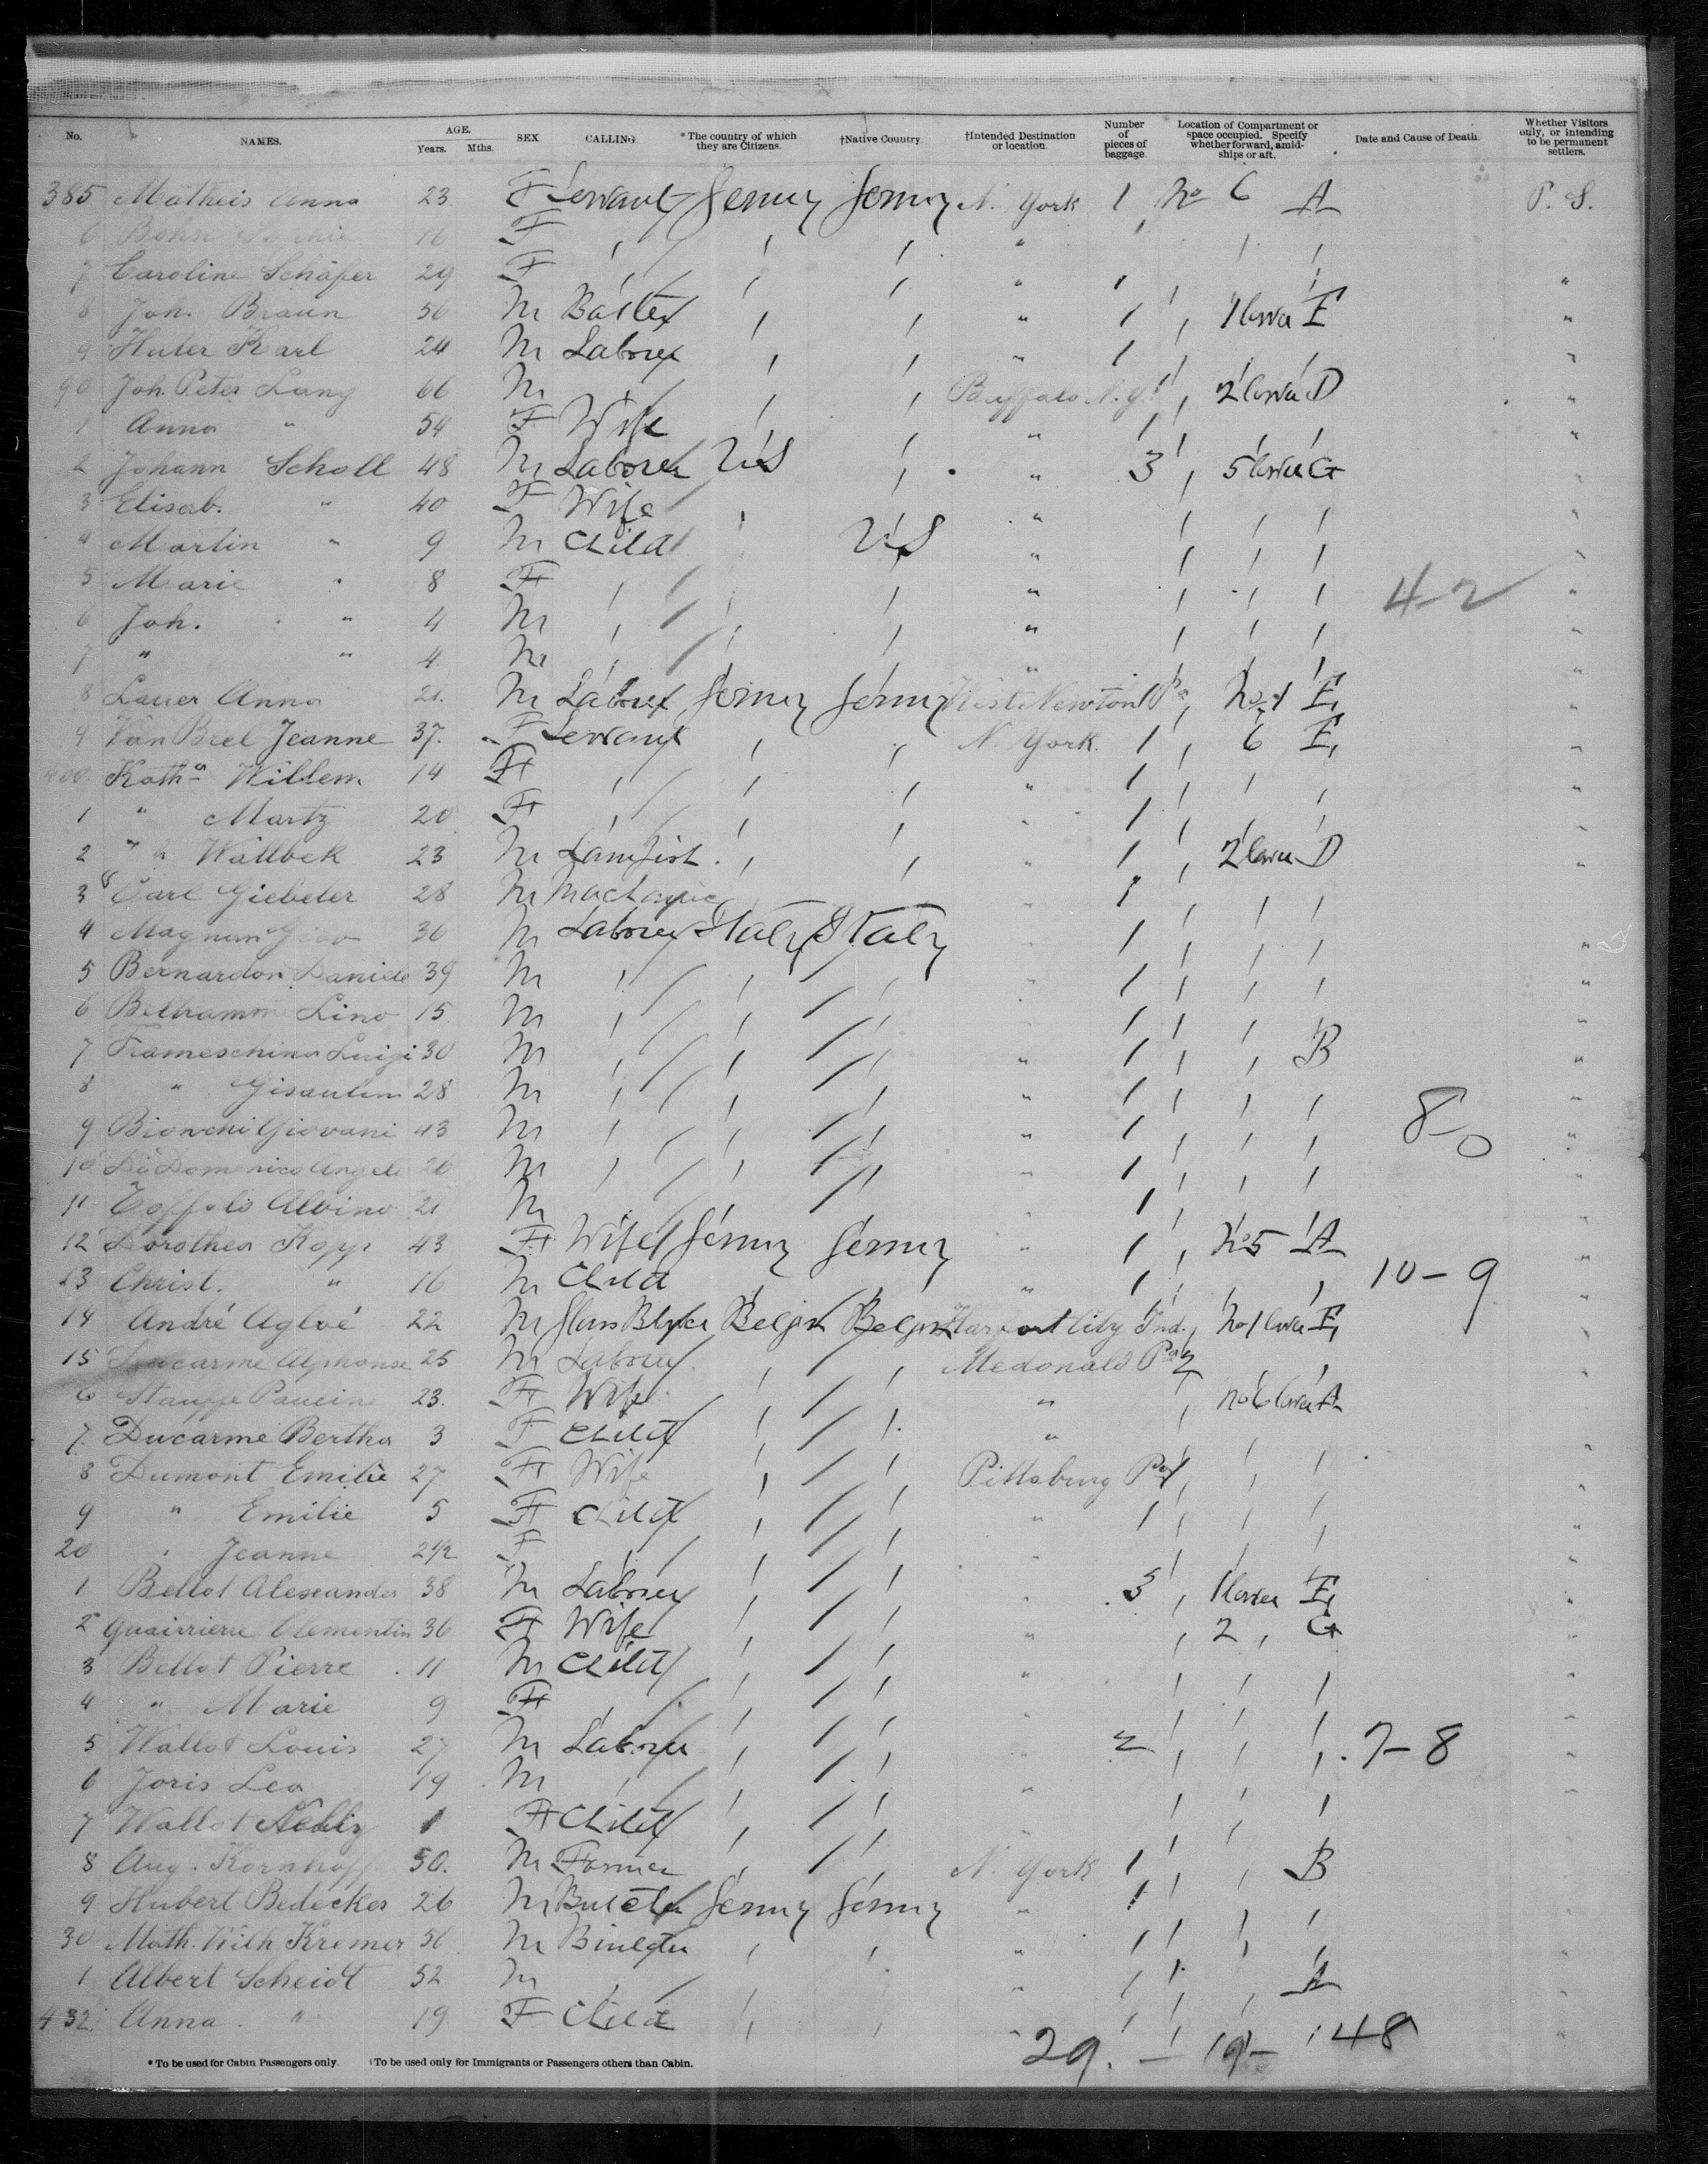 No. NAMES. AGE. Years. Mths. SEX. CALLING. *The country of which they are Citizens. †Native Country †Intended Destination or location. Number of pieces of baggage. Location of Compartment or space occupied. Specify whether forward, amidships or aft. Date and Cause of Death. Whether Visitors only, or intending to be permanent settlers.
385 Matheis Anna 23. F Servant Germy Germy N. York 1 No 6 A P. S.
6 Bohn 16 F " "
7 Caroline Schäfer 29 F " 1 "
8 Joh. Braun 56 M " 1 1 lower E "
9 Huter Karl 24 M Laborer " 1 "
90 Joh. Peter Lang 66 M Buffalo N.Y. 2 lower D "
1 Anna " 54 F Wife " "
2 Johann Scholl 48 M Laborer U.S " 3 5 lower G "
3 Elisab. " 40 F Wife " "
4 Martin " 9 M Child U.S "
5 Marie " 8 F " 4-2 "
6 Joh. " 4 M " "
7 " " 4 M " "
8 Lauer Anna 21. M Laborer Germy Germy West Newton Pa No 1 E "
9 Van Brel Jeanne 37. F Servant N. York. 1 6 E "
400 Katha Willem 14 F " 1 "
1 " Martz 20 F " 1 "
2 " Wallbek 23 M " 1 2 lower D "
3 Carl Giebeler 28 M " 1
4 36 M Laborer Italy Italy 1 "
5 Bernardon Daniele 39 M 1 "
6 Lino 15 M 1 "
7 Frameschina Luigi 30 M " 1 B "
8 " 28 M " 1 "
9 Bianchi Giovani 43 M " 1 8-0 "
10 Di Domenico Angelo 26 M 1 "
11 Toffolo Albino 21 M 1
12 Dorothea Kopp 43 F Wife Germy Germy " 1 No 5 A
13 Christ. " 16 M Child " 1 10-9
14 André Agloé 22 M Belgn Belgn Harford City Ind. No 1 lower E
15 Ducarme Alphonse 25 M Laborer Medonald Pa 2
6 23. F Wife " No 6 lower A
7. Ducarme Bertha 3 F Child "
8 Dumont Emilie 27 F Wife Pittsburg Pa
9 " Emilie 5 F Child " 1
20 " Jeanne 2 1/2 F
1 Bellot Alexander 38 M Laborer 3 1 lower E
2 Clementin 36 F Wife " 2 G
3 Bellot Pierre 11 M Child "
4 " Marie 9 F
5 Wallot Louis 27 M Laborer 2 7-8
6 Joris Lea 19 M
7 Wallot Nelly 1 F Child
8 Aug. Kornhoff 50. M Farmer N. York 1 B
9 Hubert Bedecker 26 M Germy Germy " 1
30 Math. Wilh Kremer 56 M " 1
1 Albert Scheidt 52 M " 1 A
432. Anna. " 19 F Child "
29. - 19 - 48
*To be used for Cabin Passengers only. †To be used only for Immigrants or Passengers others than Cabin.